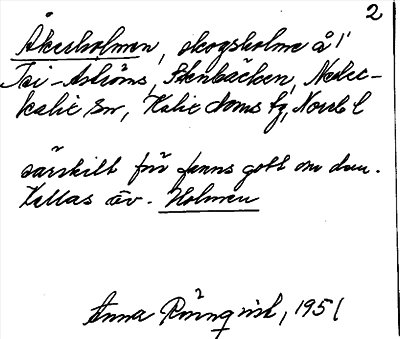 2
Åkerholmen, skogsholme å
Stenbäcken, Neder-
kalix sn, Kalix doms fg, Norrb l
särskilt för fanns gott om dem.
Kallas äv. Holmen
Anna Rönnqvist, 1951